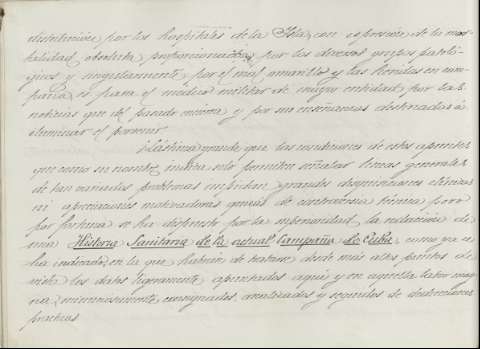 distribución, por los hospitales de la Isla, con expresión de la mor-
talidad absoluta, proporcionada, por los diversos grupos patoló-
gicos y singularmente, por el mal amarillo y las heridas en cam-
paña, es para el médico militar de mayor entidad por las
noticias que del pasado informa y por sus enseñanzas destinadas a
iluminar el porvenir.
Lástima grande, que las condiciones de estos apuntes
que como su nombre indica solo permiten señalar líneas generales
de tan variados problemas impidan, grandes disquisiciones clínicas
ni apreciaciones motivadoras quizás de controversia; pero
por fortuna se ha dispuesto por la superioridad la redacción de
una Historia Sanitaria de la actual Campaña de Cuba, como ya se
ha indicado, en la que habrán de tratarse desde más altos puntos de
vista los datos ligeramente apuntados aquí y en aquella labor mag-
na, minuciosamente consignados, analizados y seguidos de deducciones
prácticas.